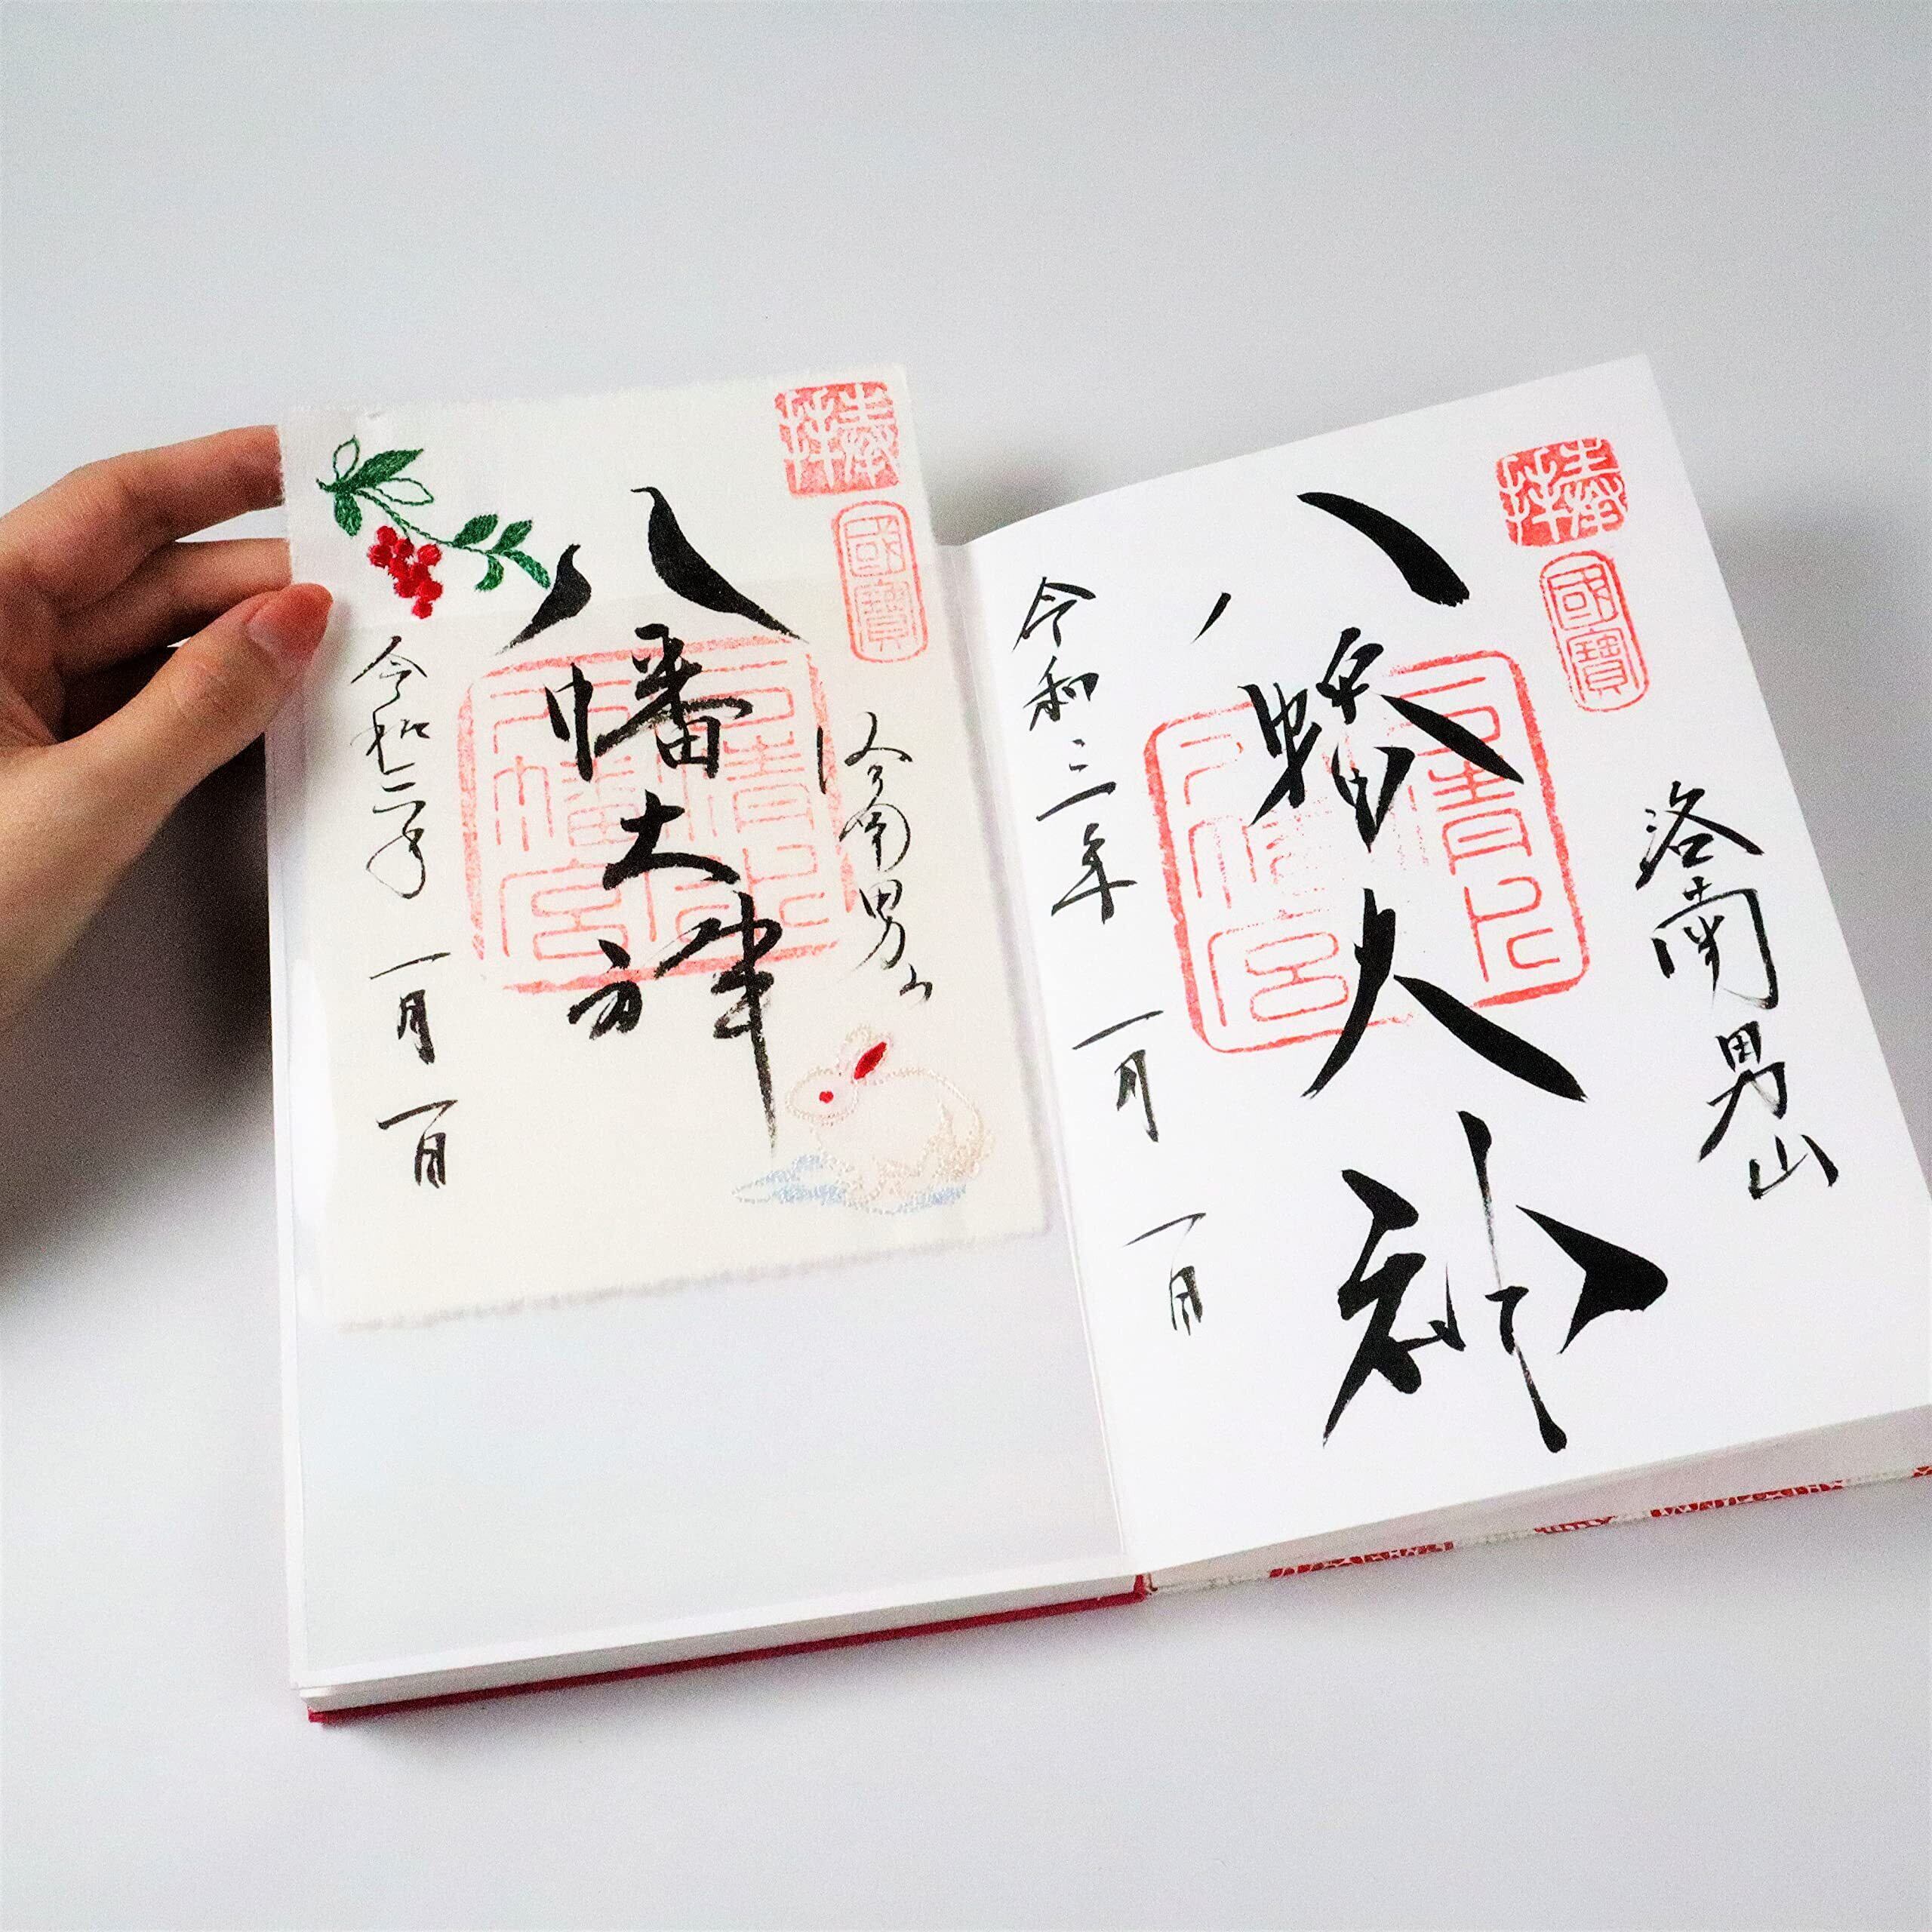 奉拝
國寶
洛南男山
八幡大神
石清水八幡宮
令和三年 一月 一日
奉拝
國寶
洛南男山
八幡大神
石清水八幡宮
令和三年 一月 一日